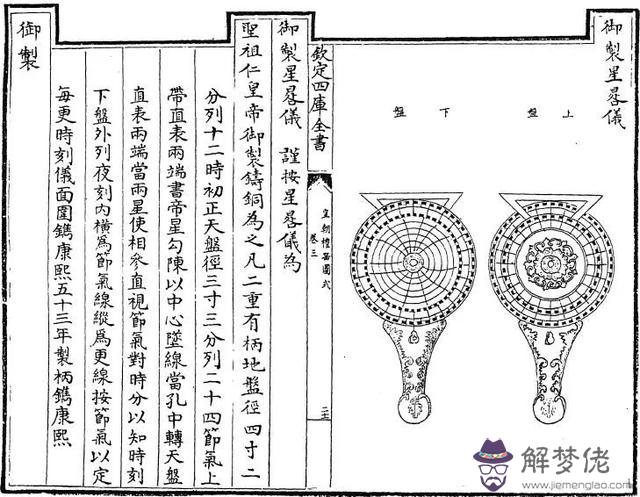 御製星晷儀
上盤
下盤
欽定四庫全書
皇朝禮器圖式
卷三
御製星晷儀 謹按星晷儀為
聖祖仁皇帝御製鑄銅為之凡二重有柄地盤徑四寸二
分列十二時初正天盤徑三寸三分列二十四節氣上
帶直表兩端書帝星勾陳以中心墜線當孔中轉天盤
直表兩端當兩星使相參直視節氣對時分以知時刻
下盤外列夜刻內橫為節氣線縱為更線按節氣以定
每更時刻儀面圍鐫康熙五十三年製柄鐫康熙
御製
解梦佬
www.jiemenglao.com